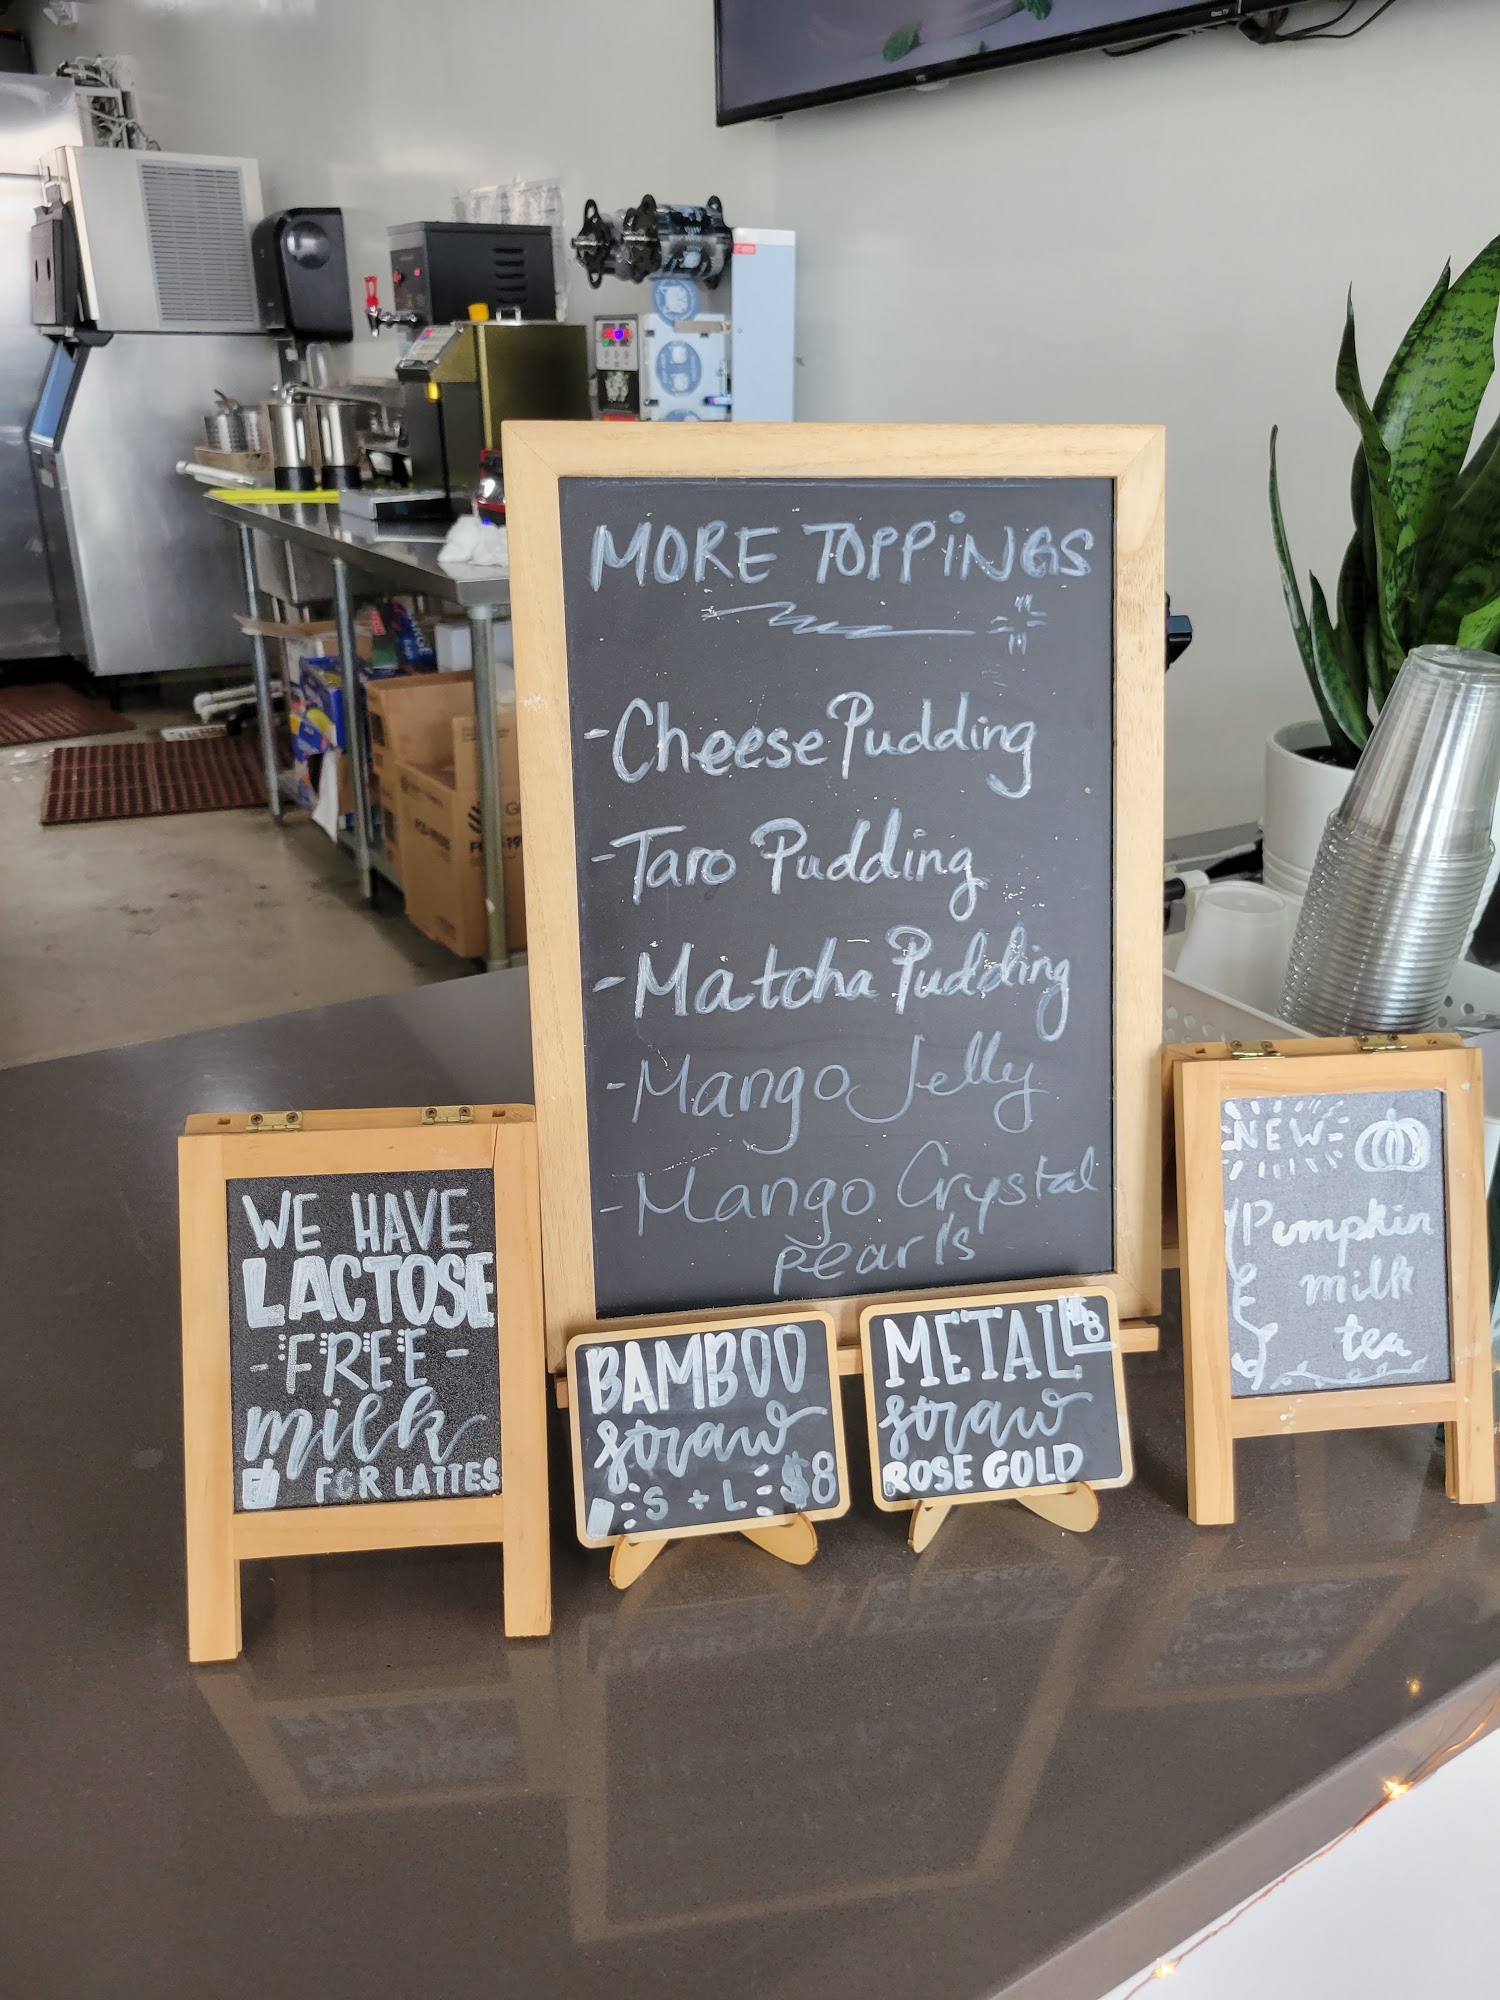 MORE TOPPINGS
-Cheese Pudding
-Taro Pudding
-Matcha Pudding
-Mango Jelly
-Mango Crystal
pearls
WE HAVE
LACTOSE
-FREE-
milk
FOR LATTES
BAMBOO
straw
S + L $8
METAL $8
straw
ROSE GOLD
NEW
Pumpkin
milk
tea